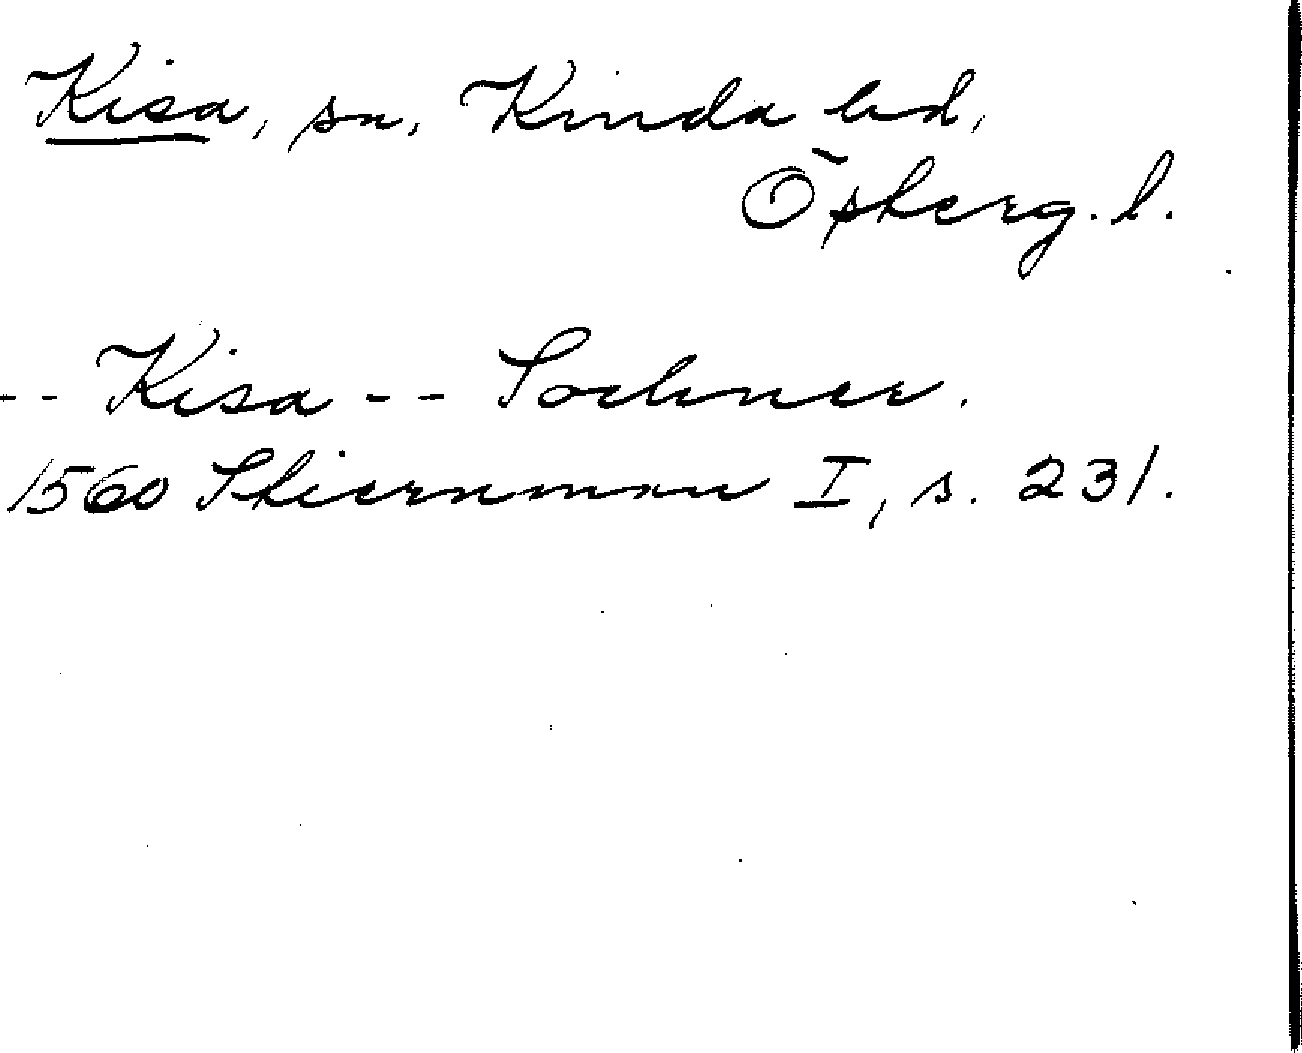 Kisa, sn, Kinda hd,
Östergl. l.
-- Kisa -- Sochner.
1560 Stiernman I, s. 231.